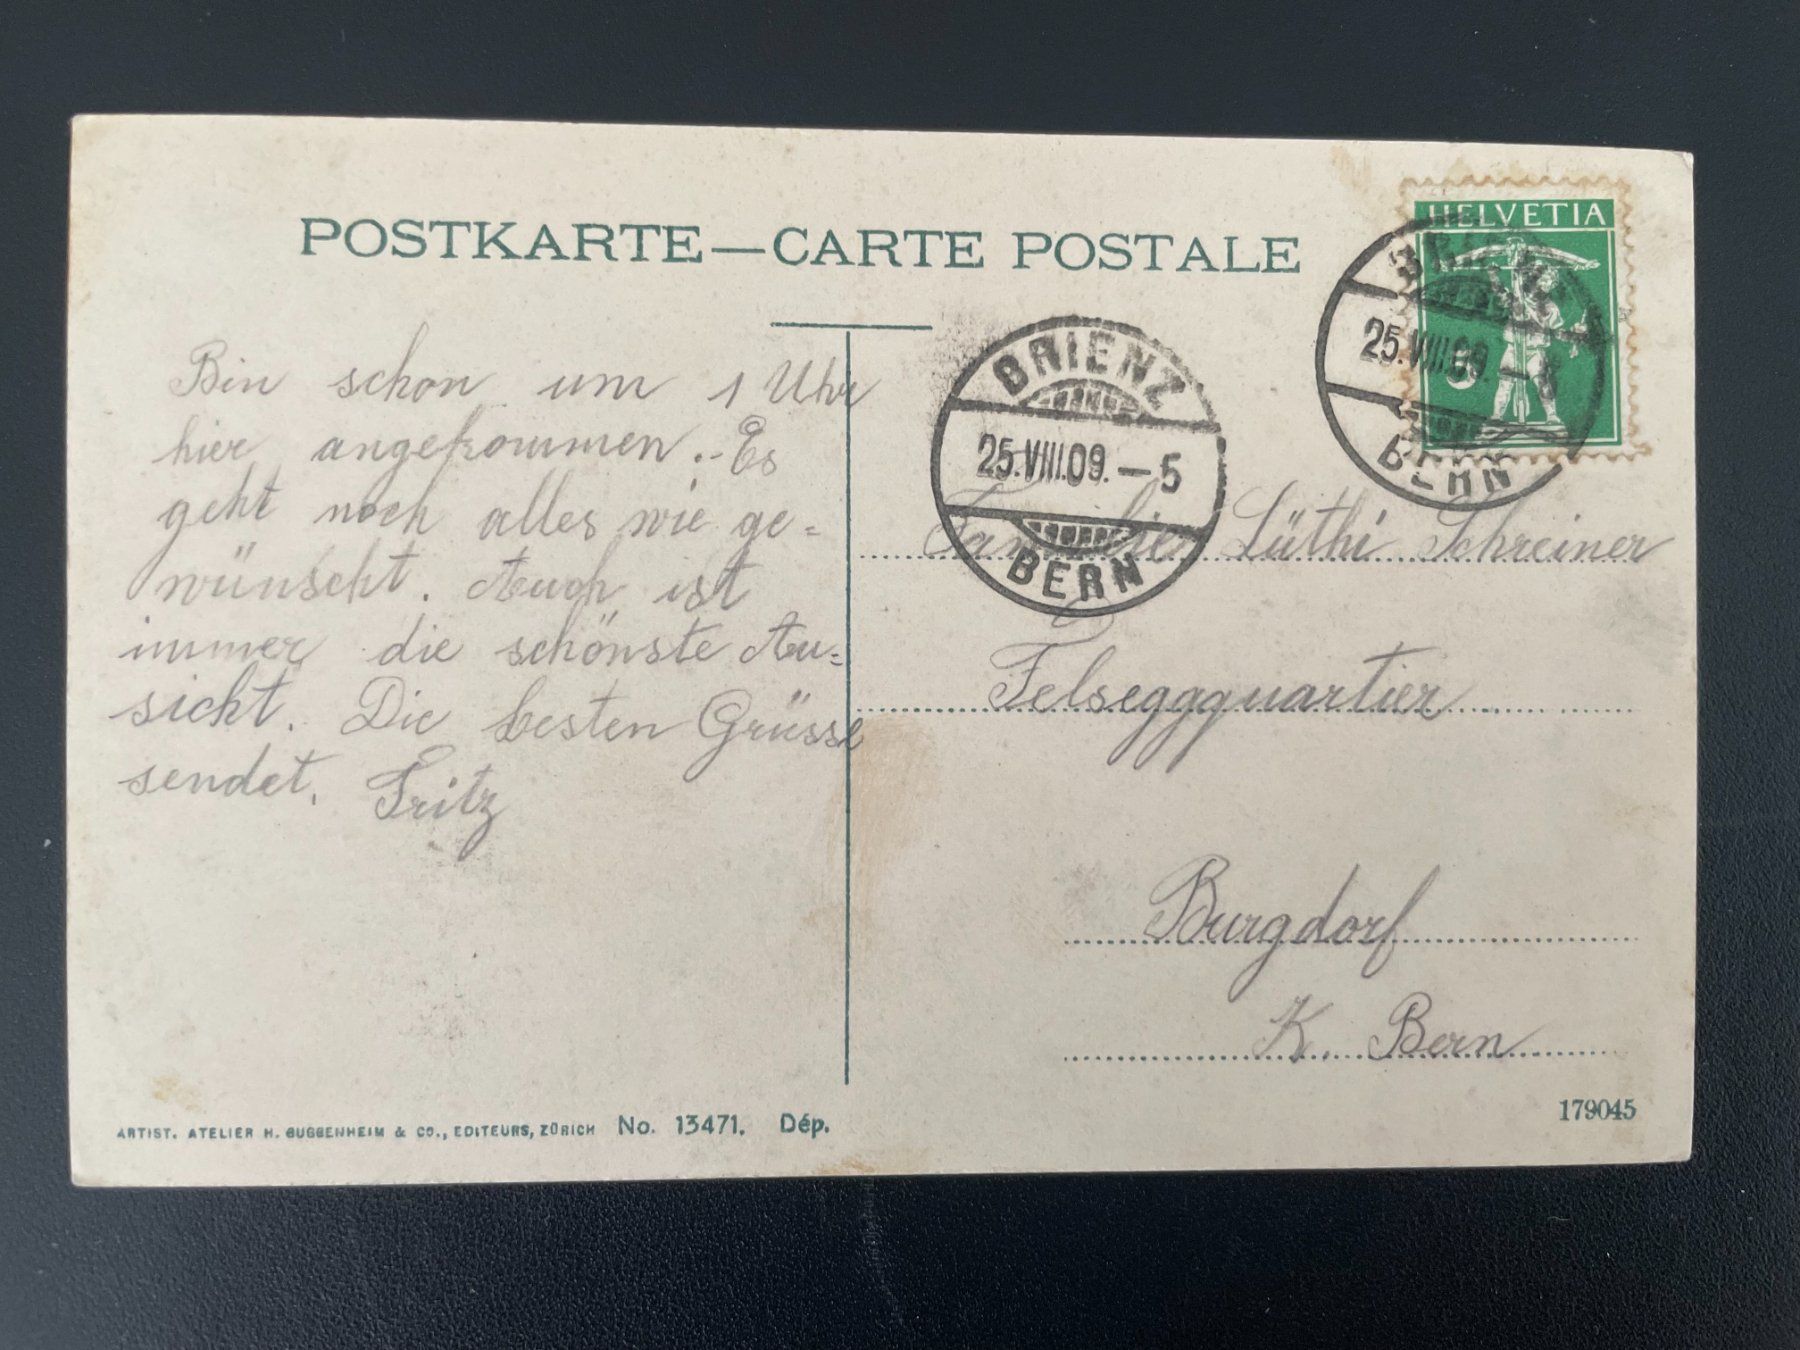 POSTKARTE—CARTE POSTALE
HELVETIA
BRIENZ
25.VIII.09.–5
BERN
25.VIII.09.–
BERN
Bin schon um 1 Uhr
hier angekommen.- Es
geht noch alles wie ge=
wünscht. Auch ist
immer die schönste Au=
sicht. Die besten Grüsse
sendet. Fritz
Familie Lüthi Schreiner
Felseggquartier
Burgdorf
K. Bern
ARTIST. ATELIER H. GUGGENHEIM & CO., EDITEURS, ZÜRICH No. 13471. Dép.
179045